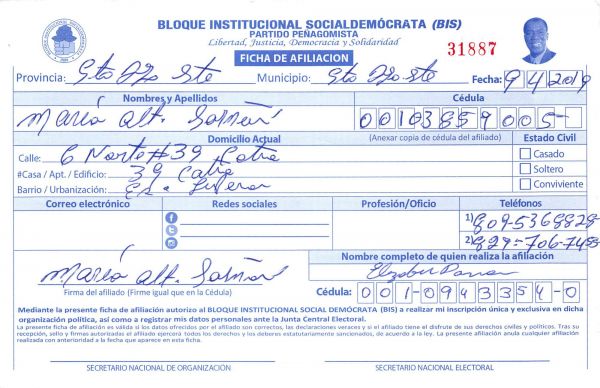 BLOQUE INSTITUCIONAL SOCIALDEMÓCRATA (BIS)
PARTIDO PEÑAGOMISTA
Libertad, Justicia, Democracia y Solidaridad
FICHA DE AFILIACION
31887
Provincia: Sto Dgo Ste Municipio: Sto Dgo Ste Fecha: 9 4 2019
Nombres y Apellidos Cédula
María Alt. 00103859005-
Domicilio Actual (Anexar copia de cédula del afiliado) Estado Civil
Calle: 6 Norte #39
#Casa / Apt. / Edificio: 39
Barrio / Urbanización:
Casado
Soltero
Conviviente
Correo electrónico Redes sociales Profesión/Oficio Teléfonos
1) 809-5368828
2) 829-706-7455
Nombre completo de quien realiza la afiliación
María Alt.
Firma del afiliado (Firme igual que en la Cédula)
Cédula: 001-0943354-0
Mediante la presente ficha de afiliación autorizo al BLOQUE INSTITUCIONAL SOCIAL DEMÓCRATA (BIS) a realizar mi inscripción única y exclusiva en dicha
organización política, así como a registrar mis datos personales ante la Junta Central Electoral.
La presente ficha de afiliación es válida si los datos ofrecidos por el afiliado son correctos, las declaraciones veraces y si el afiliado tiene el disfrute de sus derechos civiles y políticos. Tras su
recepción, sello y firmas autorizadas el afiliado ejercerá todos los derechos y los deberes estatutariamente sancionados, de acuerdo a la ley. La presente afiliación anula cualquier afiliación
realizada con anterioridad a la fecha que aparece en esta ficha.
SECRETARIO NACIONAL DE ORGANIZACIÓN SECRETARIO NACIONAL ELECTORAL